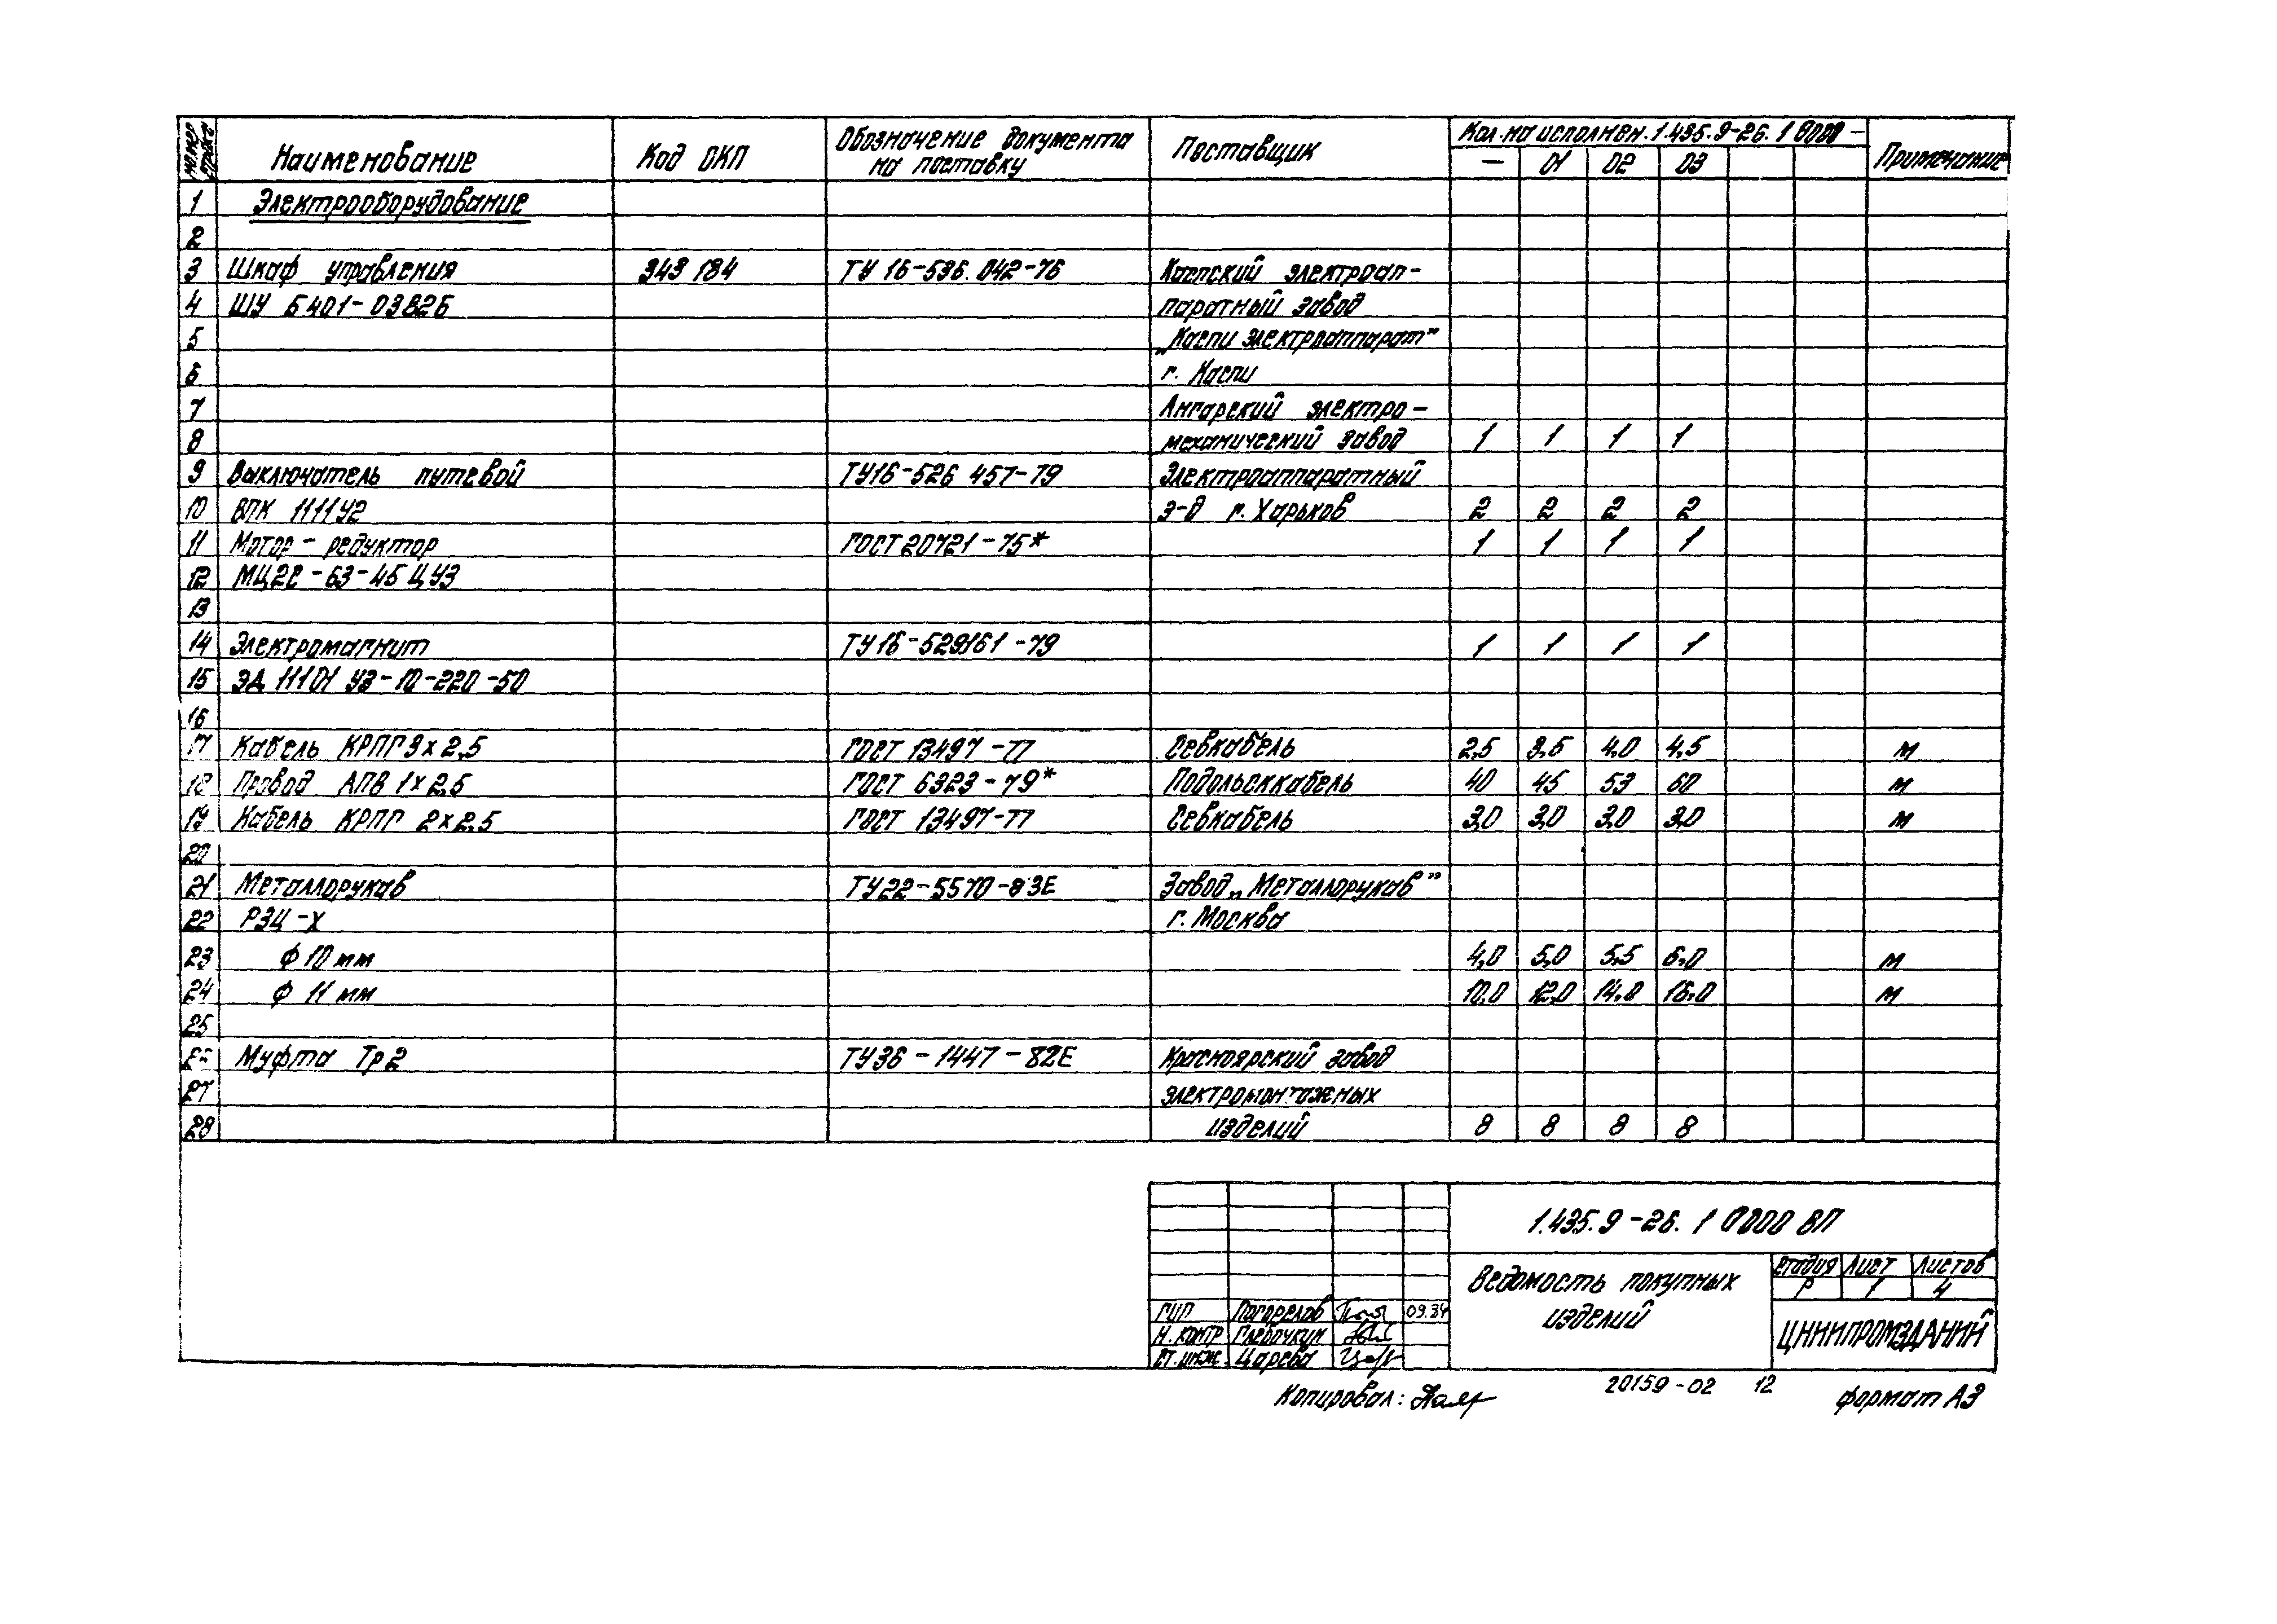 Номер строки Наименование Код ОКП Обозначение документа на поставку Поставщик Кол. на исполнен. 1.435.9-26. 1 0000 - Примечание
— 01 02 03
1 Электрооборудование
2
3 Шкаф управления 343 184 ТУ 16-536.042-76 Каспский электроап-
4 ШУ 5401-03В2Б паратный завод
5 „Каспи электроаппарат"
6 г. Каспи
7 Ангарский электро-
8 механический завод 1 1 1 1
9 Выключатель путевой ТУ16-526 457-79 Электроаппаратный
10 ВПК 1111У2 з-д г. Харьков 2 2 2 2
11 Мотор-редуктор ГОСТ 20721-75* 1 1 1 1
12 МЦ2С-63-45 ЦУЗ
13
14 Электромагнит ТУ16-529161-79 1 1 1 1
15 ЭД 11101 УЗ-10-220-50
16
17 Кабель КРПГ 3х2,5 ГОСТ 13497-77 Севкабель 2,5 3,5 4,0 4,5 м
18 Провод АПВ 1х2,5 ГОСТ 6323-79* Подольсккабель 40 45 53 60 м
19 Кабель КРПГ 2х2,5 ГОСТ 13497-77 Севкабель 3,0 3,0 3,0 3,0 м
20
21 Металлорукав ТУ22-5570-83Е Завод „Металлорукав"
22 РЗЦ-Х г. Москва
23 Ф 10 мм 4,0 5,0 5,5 6,0 м
24 Ф 11 мм 10,0 12,0 14,0 16,0 м
25
26 Муфта Тр2 ТУ36-1447-82Е Красноярский завод
27 электромонтажных
28 изделий 8 8 8 8
1.435.9-26. 1 0000 ВП
Ведомость покупных изделий
Стадия Лист Листов
Р 1 4
ГИП Погорелов 09.84
Н. контр
Ст. инж. Царева
ЦНИИПРОМЗДАНИЙ
Копировал:
20159-02 12
формат А3